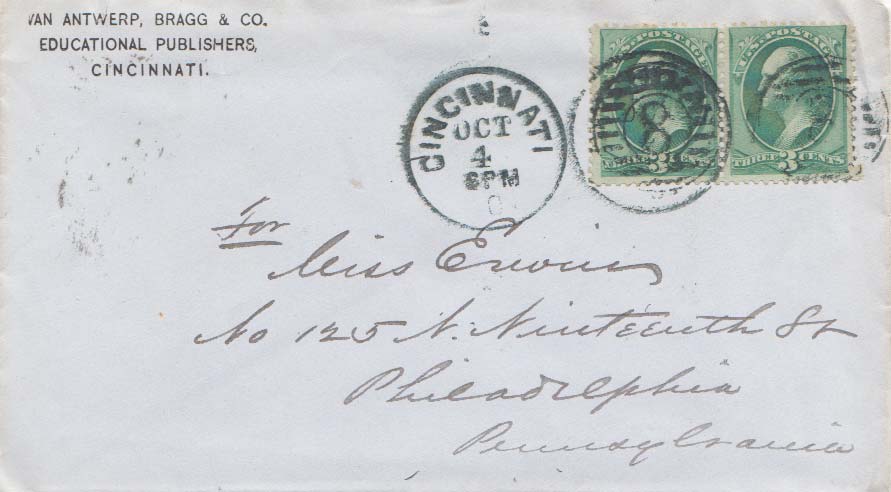 VAN ANTWERP, BRAGG & CO.
EDUCATIONAL PUBLISHERS,
CINCINNATI.
CINCINNATI
OCT
4
6PM
U.S. POSTAGE
THREE 3 CENTS
U.S. POSTAGE
THREE 3 CENTS
For
Miss Erwin
No 125 N. Ninteenth St
Philadelphia
Pennsylvania